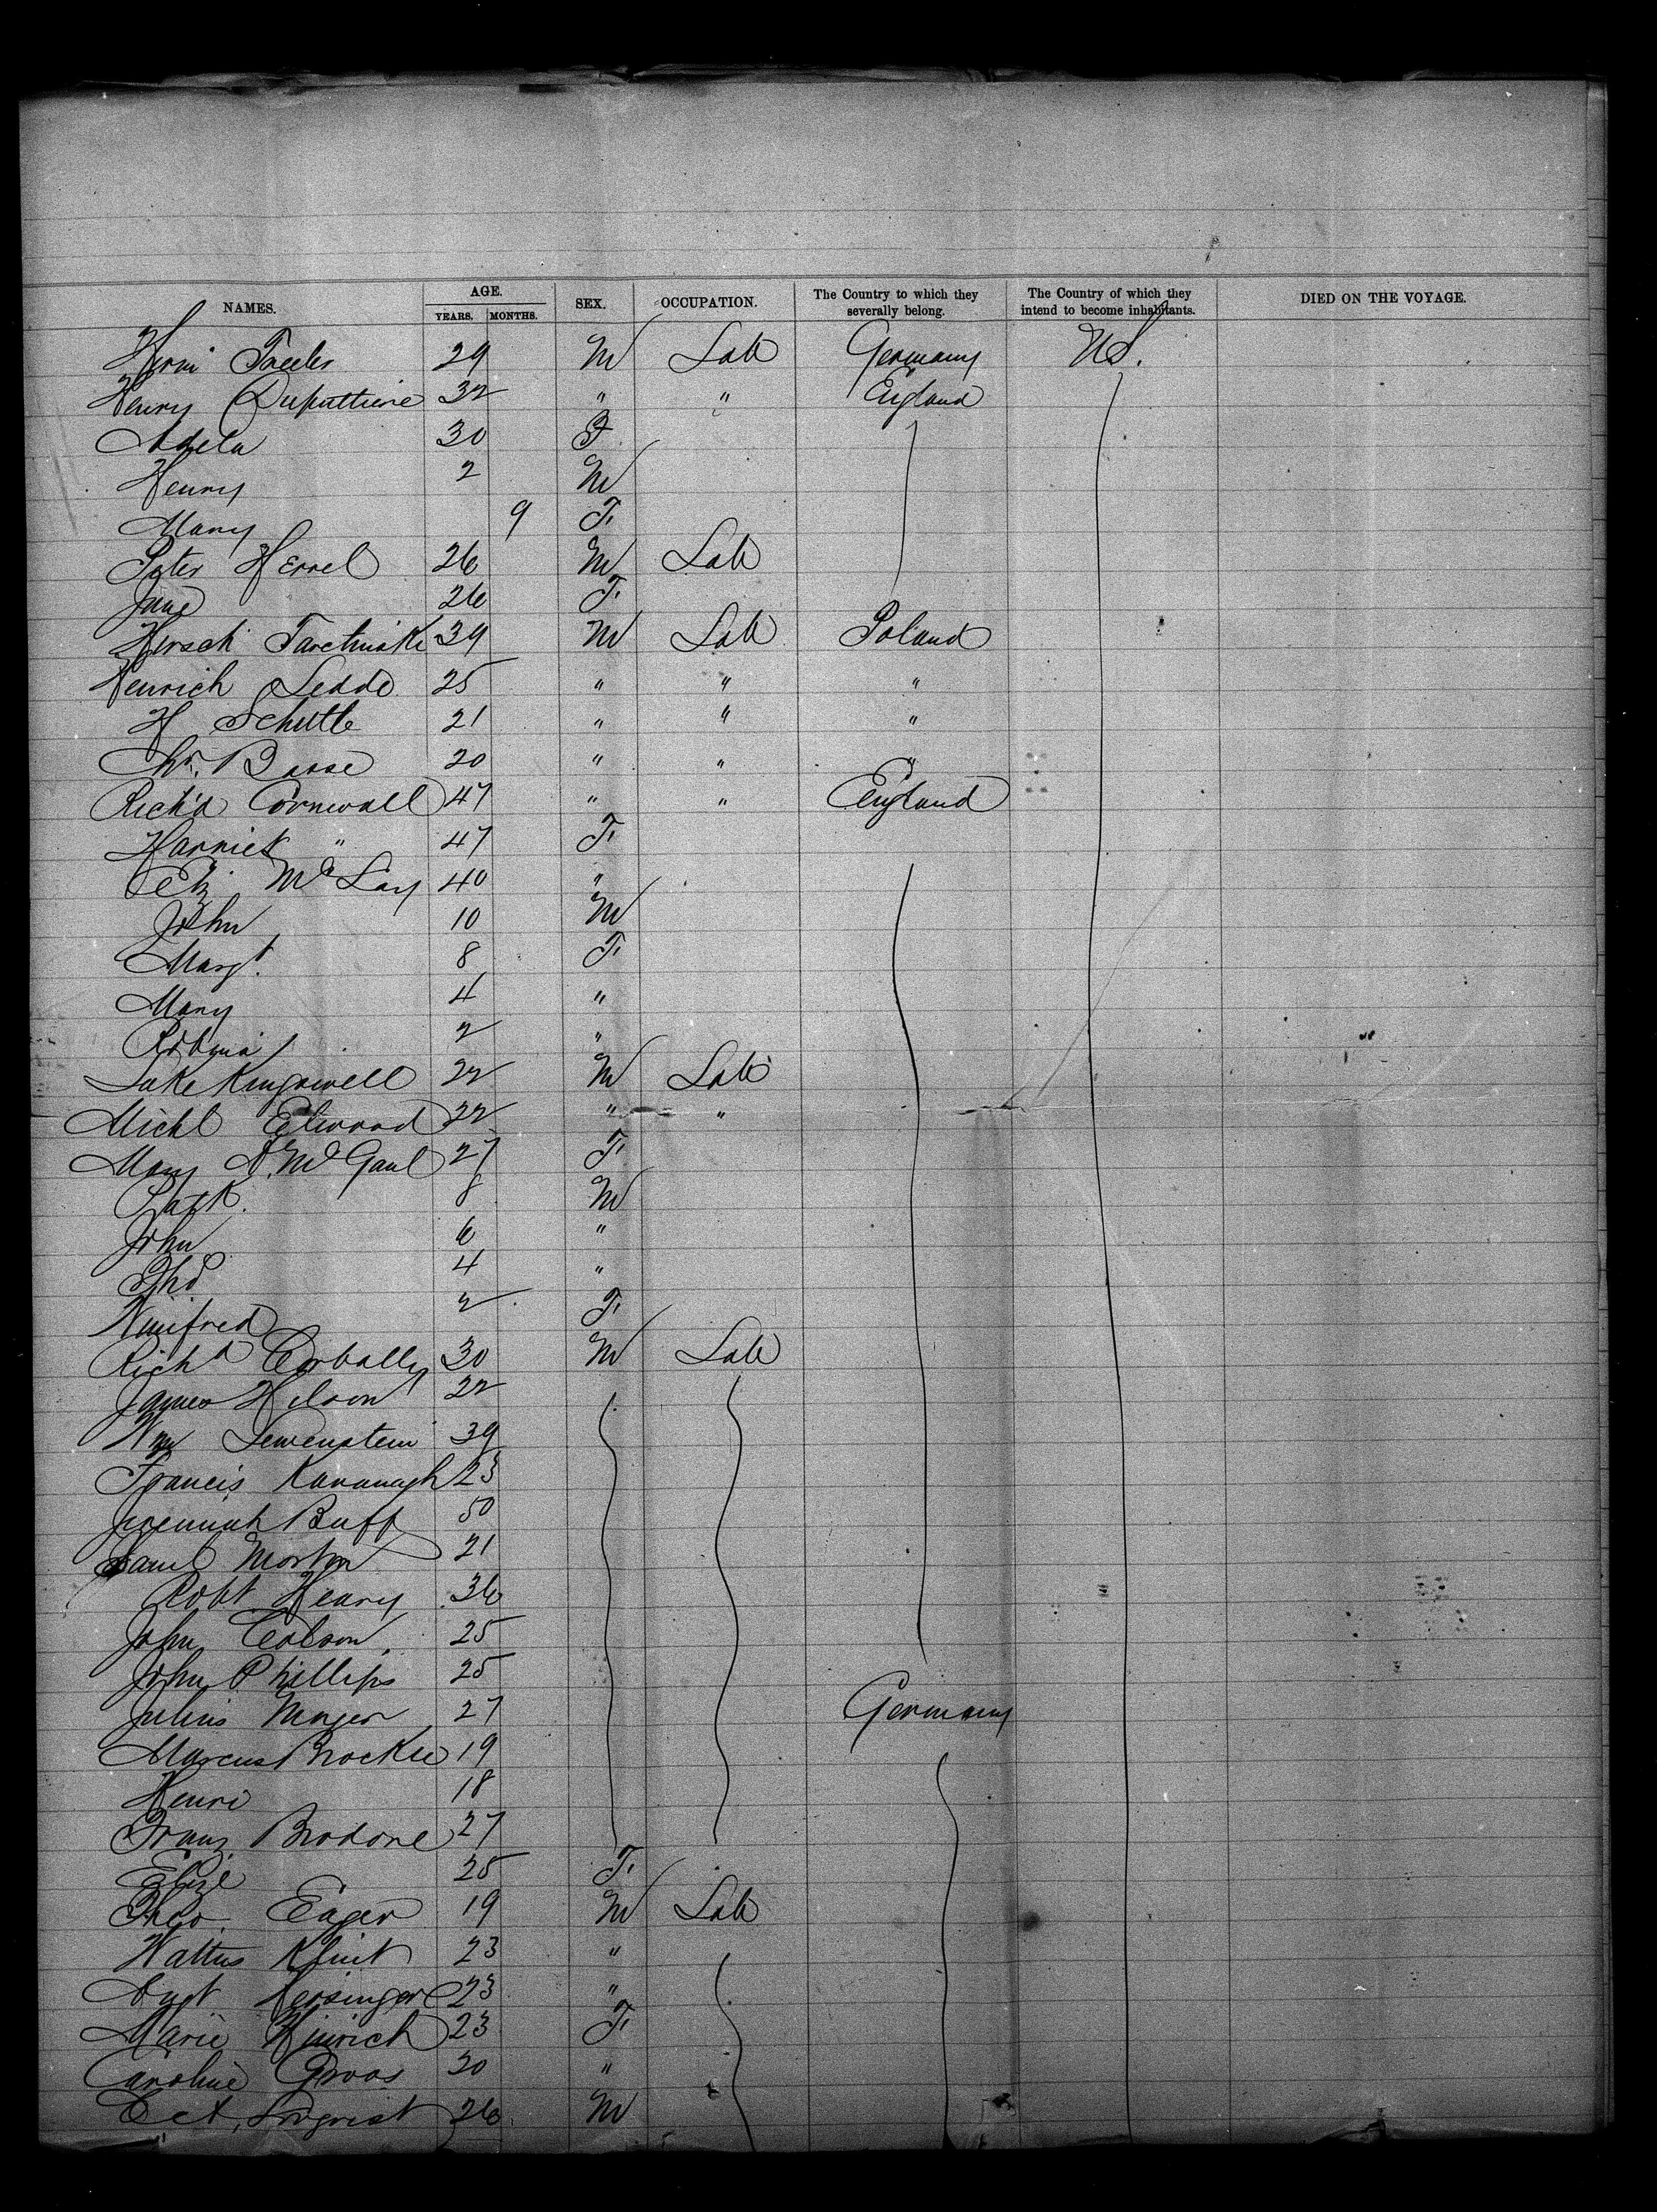 NAMES. AGE. SEX. OCCUPATION. The Country to which they severally belong. The Country of which they intend to become inhabitants. DIED ON THE VOYAGE.
YEARS. MONTHS.
29 M Lab Germany U.S.
Henry 32 " " England
Adela 30 F
Henry 2 M
Mary 9 F.
Peter Herrel 26 M Lab
Jane 26 F.
Hersch 39 M Lab Poland
Henrich Ledde 25 " " "
H Schutte 21 " " "
Chr. Basse 20 " " "
Rich'd Cornwall 47 " " England
Harriet " 47 F.
Eliz McLay 40 "
John 10 M
Margt. 8 F.
Mary 4 "
Robina 2 "
Luke Kingswell 22 M Lab
Michl Elwood 22 " "
Mary A. McGaul 27 F.
Patk. 8 M
John 6 "
Tho 4 "
Winifred 2 F.
Richd Corbally 30 M Lab
James Hilson 22
Wm Lewenstein 39
Francis Kavanagh 23
Jeremiah Buff 50
Saml Morton 21
Robt Henry 36
John Colson 25
John Phillips 25
Julius Mayer 27 Germany
Marcus 19
Henri 18
Franz Brodone 27
Elize 25 F.
Theo. Eager 19 M Lab
Klint 23 "
Augt. 23 "
Marie Hinrich 23 F.
Caroline Groos 30 "
26 M